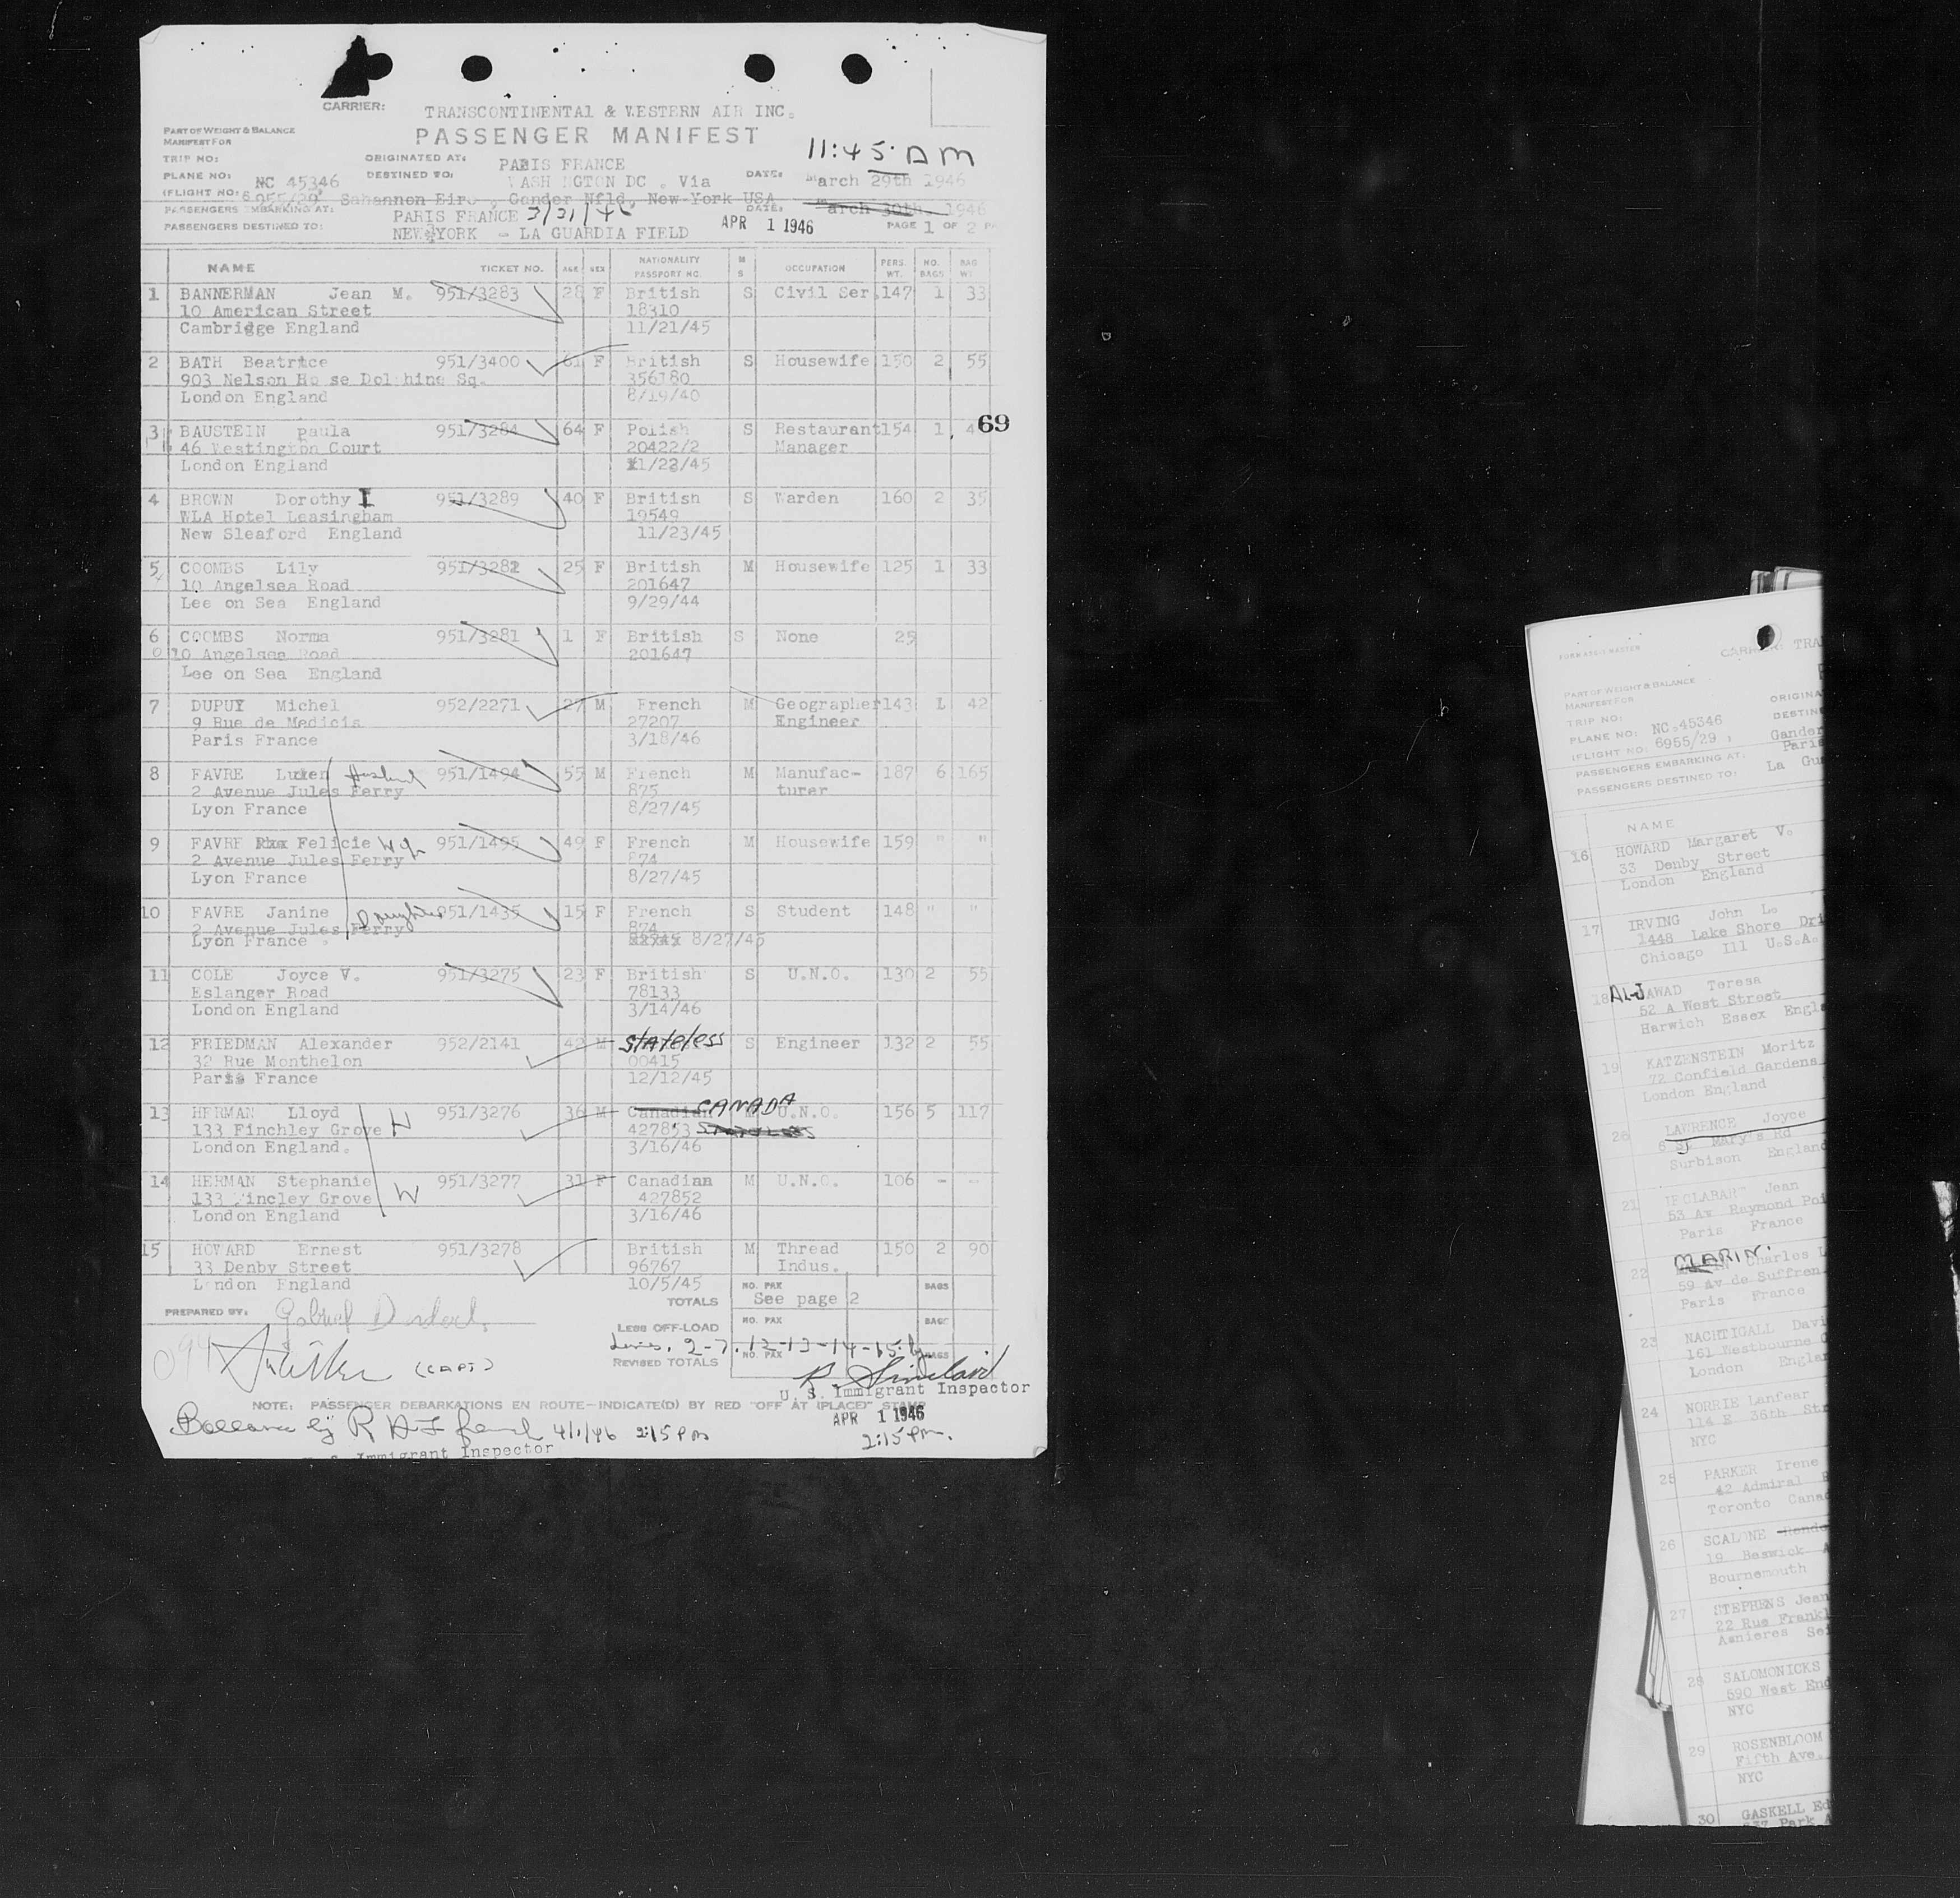 CARRIER: TRANSCONTINENTAL & WESTERN AIR INC.
PASSENGER MANIFEST
11:45 AM
PART OF WEIGHT & BALANCE
MANIFEST FOR
TRIP NO: ORIGINATED AT: PARIS FRANCE
PLANE NO: NC 45346 DESTINED TO: WASHINGTON DC . Via DATE: March 29th 1946
(FLIGHT NO: 6955/29 Sahannon Eire , Gander Nfld, New-York USA
PASSENGERS EMBARKING AT: PARIS FRANCE 3/31/46 DATE: March 30th. 1946
PASSENGERS DESTINED TO: NEW YORK - LA GUARDIA FIELD APR 1 1946 PAGE 1 OF 2
NAME TICKET NO. AGE SEX NATIONALITY PASSPORT NO. M S OCCUPATION PERS. WT. NO. BAGS BAG WT.
1 BANNERMAN Jean M. 951/3283 28 F British S Civil Ser. 147 1 33
10 American Street 18310
Cambridge England 11/21/45
2 BATH Beatrice 951/3400 61 F British S Housewife 150 2 55
903 Nelson Ho se Dol hine Sq. 356180
London England 8/19/40
69
3 BAUSTEIN paula 951/3284 64 F Polish S Restaurant 154 1 4
46 Westington Court 20422/2 Manager
London England 11/22/45
4 BROWN Dorothy I 951/3289 40 F British S Warden 160 2 35
WLA Hotel Leasingham 19549
New Sleaford England 11/23/45
5 COOMBS Lily 951/3282 25 F British M Housewife 125 1 33
10 Angelsea Road 201647
Lee on Sea England 9/29/44
6 COOMBS Norma 951/3281 1 F British S None 25
10 Angelsea Road 201647
Lee on Sea England
7 DUPUY Michel 952/2271 27 M French M Geographer 143 1 42
9 Rue de Medicis 27207 Engineer
Paris France 3/18/46
8 FAVRE Lucien Husband 951/1494 55 M French M Manufac- 187 6 165
2 Avenue Jules Ferry 875 turer
Lyon France 8/27/45
9 FAVRE Felicie Wife 951/1495 49 F French M Housewife 159 " "
2 Avenue Jules Ferry 874
Lyon France 8/27/45
10 FAVRE Janine Daughter 951/1435 15 F French S Student 148 " "
2 Avenue Jules Ferry 874
Lyon France . 8/27/45
11 COLE Joyce V. 951/3275 23 F British S U.N.O. 130 2 55
Eslanger Road 78133
London England 3/14/46
12 FRIEDMAN Alexander 952/2141 42 M Stateless S Engineer 132 2 55
32 Rue Monthelon 00415
Paris France 12/12/45
13 HERMAN Lloyd H 951/3276 36 M Canadian CANADA M U.N.O. 156 5 117
133 Finchley Grove 427853
London England. 3/16/46
14 HERMAN Stephanie W 951/3277 31 F Canadian M U.N.O. 106 - -
133 Fincley Grove 427852
London England 3/16/46
15 HOWARD Ernest 951/3278 British M Thread 150 2 90
33 Denby Street 96767 Indus.
London England 10/5/45 NO. PAX BAGS
PREPARED BY: TOTALS See page 2
LESS OFF-LOAD NO. PAX BAGS
Lines. 2-7.12-13-14-15
REVISED TOTALS NO. PAX BAGS
(CAPT) R. Sinclair
U. S. Immigrant Inspector
NOTE: PASSENGER DEBARKATIONS EN ROUTE—INDICATE(D) BY RED "OFF AT (PLACE)" STAMP
APR 1 1946
2:15 PM.
by 4/1/46 2:15 PM
S. Immigrant Inspector
CARRIER: TRA
PART OF WEIGHT & BALANCE
MANIFEST FOR
TRIP NO: ORIGINA
PLANE NO: NC.45346 DESTIN
(FLIGHT NO: 6955/29 , Gander
PASSENGERS EMBARKING AT: Paris
PASSENGERS DESTINED TO: La Gu
NAME
16 HOWARD Margaret V.
33 Denby Street
London England
17 IRVING John L.
1448 Lake Shore Dri
Chicago Ill U.S.A.
18 AL-JAWAD Teresa
52 A West Street
Harwich Essex Engla
19 KATZENSTEIN Moritz
72 Confield Gardens
London England
20 LAWRENCE Joyce
6 St Mary's Rd
Surbison England
21 Jean
53 Av Raymond Poi
Paris France
22 MARIN. Charles L
59 Av de Suffren
Paris France
23 NACHTIGALL Davi
161 Westbourne
London Englan
24 NORRIE Lanfear
114 E 36th Str
NYC
25 PARKER Irene
42 Admiral R
Toronto Canad
26 SCALONE
19 Beswick A
Bournemouth
27 STEPHENS Jean
22 Rue Frankl
Asnieres Sei
28 SALOMONICKS
590 West End
NYC
29 ROSENBLOOM
Fifth Ave.
NYC
30 GASKELL Ed
Park A